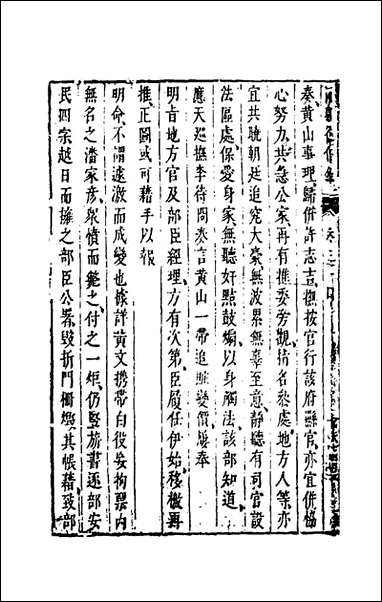 奏黃山事理歸併許志吉撫按官行該府縣官亦宜併恊
心努力共急公家再有推委旁觀指名叅處地方人等亦
宜共曉朝廷追究大豪無波累無辜至意靜聽有司官設
法區處保愛身家無聽奸㸃鼓煽以身觸法該部知道
應天巡撫李待問奏言黃山一帶追贓變價屢奉
明旨地方官及部臣經理方有次第臣履任伊始移檄再
推正圖或可藉手以報
明命不謂遽激而成變也據詳黃文携帶白役妄拘票內
無名之潘家彥衆憤而斃之付之一炬仍竪旂書逐部安
民四宗越日而擁之部臣公署毀折門柵燬其帳藉致部